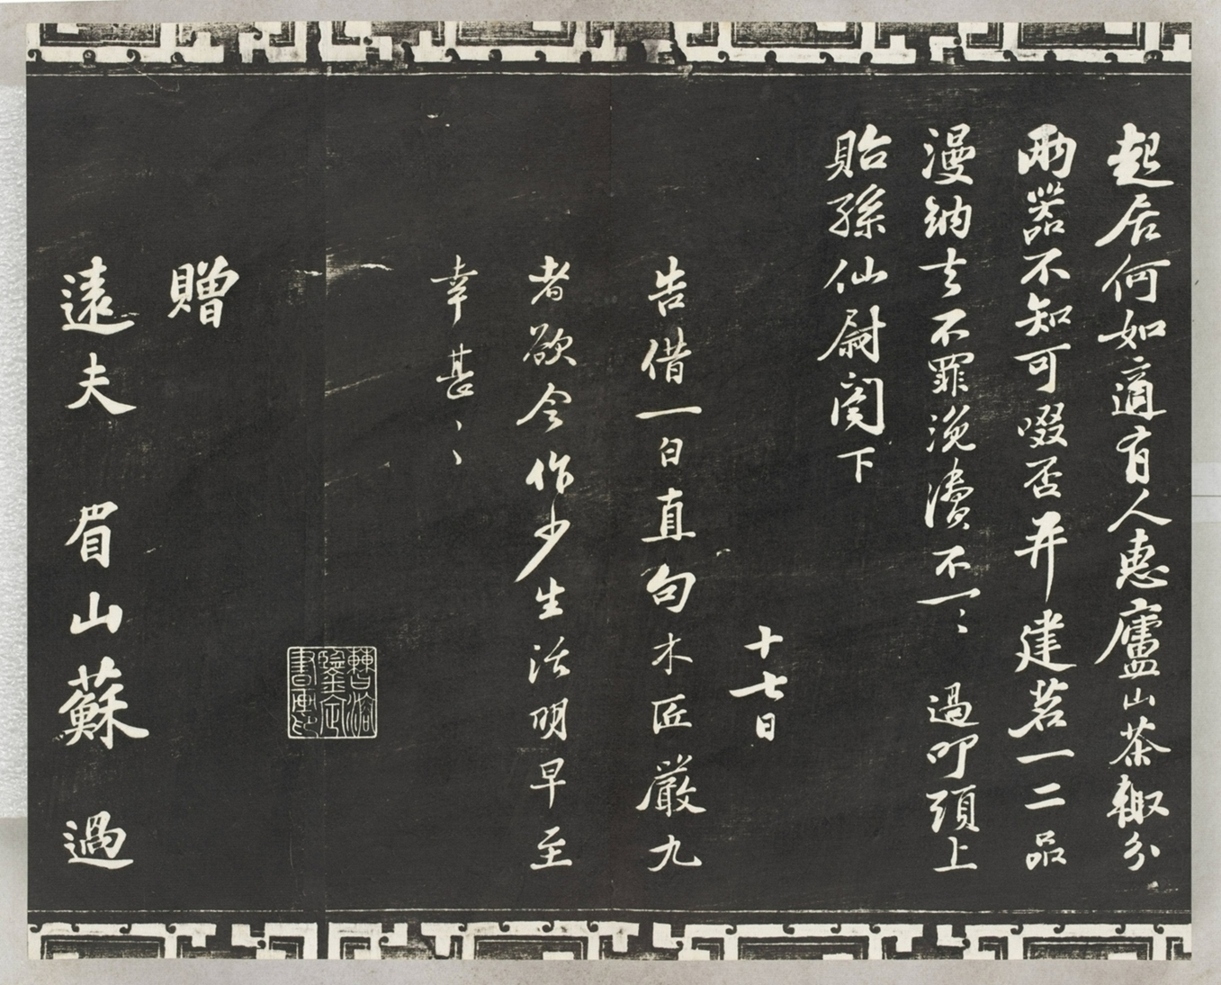 起居何如適有人惠廬山茶輙分
兩器不知可啜否并建茗一二品
漫納去不罪浼瀆不一〻 過叩頭上
貽孫仙尉閤下
十七日
告借一白直句木匠嚴九
者欲令作少生活明早至
幸甚〻〻
贈
遠夫 眉山蘇 過